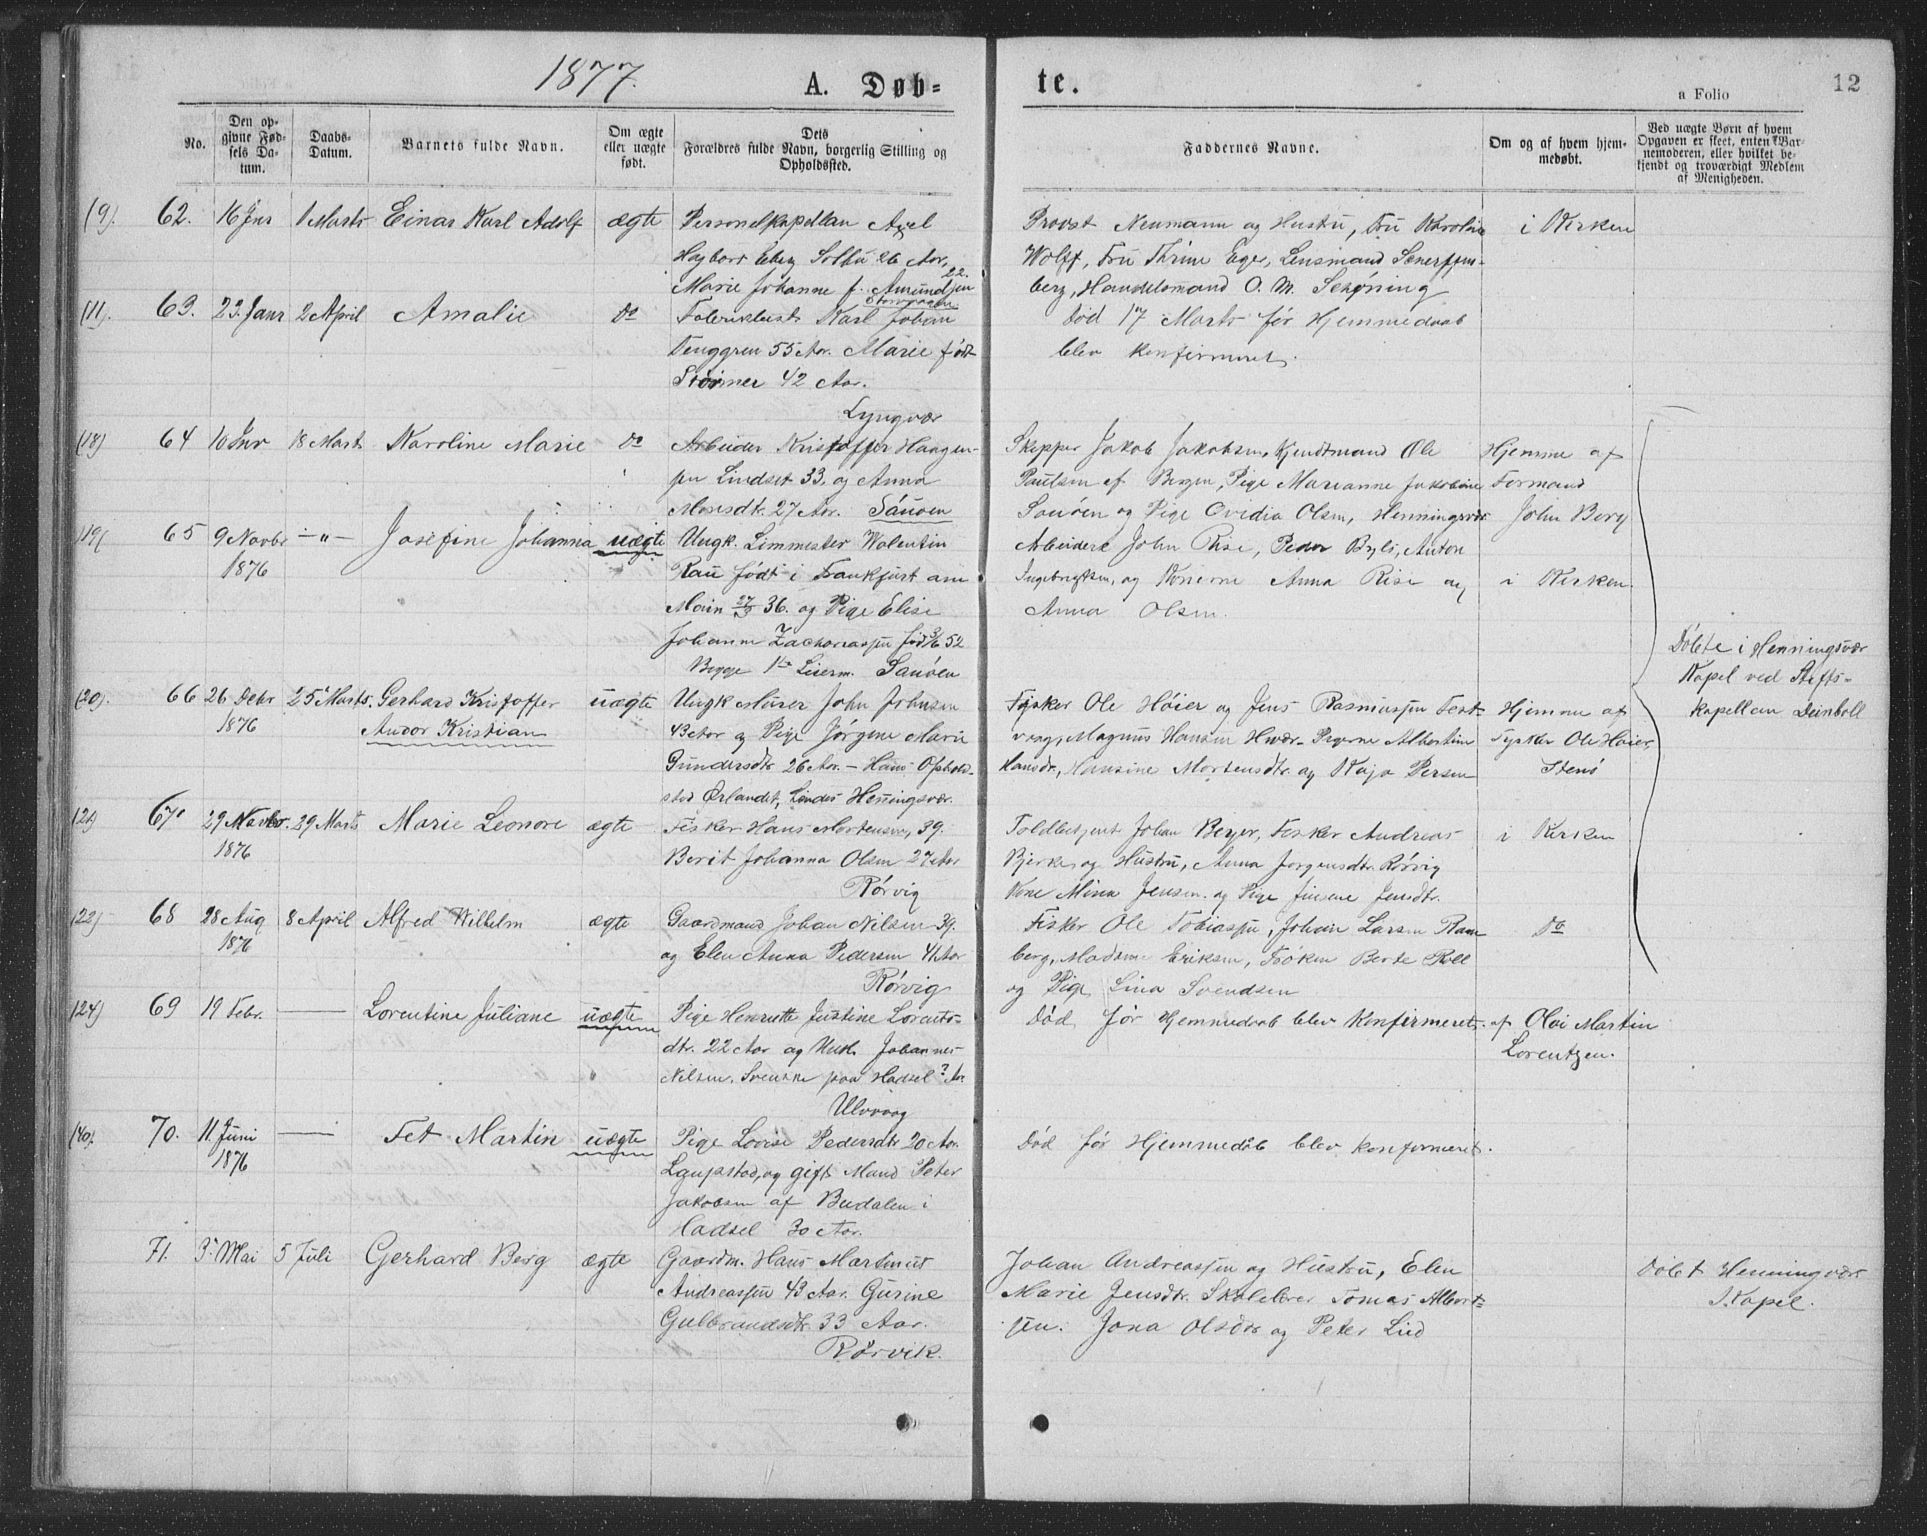 1877.
A. Døb-
te.
a Folio
12
No.
Den op-
givne Fød-
sels Da-
tum.
Daabs-
Datum.
Barnets fulde Navn.
Om ægte
eller uægte
født.
Dets
Forældres fulde Navn, borgerlig Stilling og
Opholdssted.
Faddernes Navne.
Om og af hvem hjem-
medøbt.
Ved uægte Børn af hvem
Opgaven er skeet, enten Bar-
nemoderen, eller hvilket be-
kjendt og troværdigt Medlem
af Menigheden.
(9). 62. 16 Jnr 1 Marts Einar Karl Adolf ægte
Personelkapellan Axel
Hagbart 26 Aar,
Marie Johanne f. Amundsen 22.
Storvaagen
Provst Neumann og Hustru, Fru Karoline
Wolff, Fru Thrine Eger, Lensmand
berg, Handelsmand O. M. Schøning
i Kirken
(11). 63. 23. Janr 2 April Amalie Do
Karl Johan
Tenggren 55 Aar. Marie født
Størmer 42 Aar.
Lyngvær
Død 17 Marts før Hjemmedaab
blev konfirmeret.
(18) 64 16 Jnr 18 Mart Karoline Marie Do
Arbeider Kristoffer Haagen-
sen Lindset 33, og Anna
Mosesdtr. 27 Aar. Sauøen
Skipper Jakob Jakobsen, Kjendtmand Ole
Paulsen af Bergen, Pige Marianne Jakobine
Sauøen og Pige Ovidia Olsen, Henningsvær
Hjemme af
Formand
John Berg
(19) 65 9 Novbr -"- Josefine Johanna uægte
1876
Ungk. Limmester Valentin
Rau født i Frankfurt am
Main 27/3 36. og Pige Elise
Johanne Zachariassen fød 3/6 52
Begge 1ste Leierm. Sauøen
Arbeidere John Rise, Peder Bylt, Anton
Ingebrigtsen, og Konerne Anna Rise og
Anna Olsen.
i Kirken.
Døbte i Henningsvær
Kapel ved Stifts-
kapellan Deinboll
(20). 66 26 Debr 25 Marts. Gerhard Kristoffer uægte
1876
Andor Kristian
Ungk Murer John Johnsen
43 Aar og Pige Jørgine Marie
Gundersdtr 26 Aar. - Hans Ophold-
sted Ørlandet, Hendes Henningsvær.
Fisker Ole Høier og Jens Rasmussen Fest-
vaag, Magnus Hansen Hvær. Pigerne Albertine
Hansdr., Hansine Mortensdtr. og Kaja Persen
Hjemme af
Fisker Ole Høier,
(21) 67. 29 Novbr. 29 Marts Marie Leonore ægte
1876
Fisker Hans Mortensen, 39.
Berit Johanna Olsen 27 Aar
Rørvig
Toldbetjent Johan Beyer, Fisker Andreas
Bjerke og Hustru, Anna Jørgensdtr. Rørvig
Kone Mina Jensen. og Pige Jensdtr.
i Kirken
(22) 68 28 Aug 8 April Alfred Wilhelm ægte
1876
Gaardmand Johan Nilsen 39.
og Elen Anna Pedersen 41 Aar
Rørvig
Fisker Ole Tobiassen, Johan Larsen Ram
berg, Madame Eriksen, Frøken Berte Roll
og Pige Lina Svendsen
Do
(24) 69 19 Febr. Lorentine Juliane uægte
Pige Henriette Justine Lorents-
dtr. 22 Aar og Ungk. Johannes
Nilsen, Svenske paa Hadsel ? Aar
Ulvvaag
Død før Hjemmedaab blev konfirmeret. af Oloi Martin
Lorentzen.
(40). 70. 11. Juni Fet Martin uægte
1876
Pige Lovise Pedersdtr 20 Aar.
Laupstad, og gift Mand Peter
Jakobsen af Budalen i
Hadsel 30 Aar.
Død før Hjemmedåb blev konfirmeret.
71. 3. Mai 5 Juli Gerhard Berg ægte
Gaardm. Hans Martinus
Andreassen 43 Aar. Gurine
Gulbrandsdtr 33 Aar.
Rørvik.
Johan Andreassen og Hustru, Elen
Marie Jensdtr. Skolelærer Tomas Albert-
sen. Jona Olsdtr og Peter Lied
Døbt Henningsvær
Kapel.